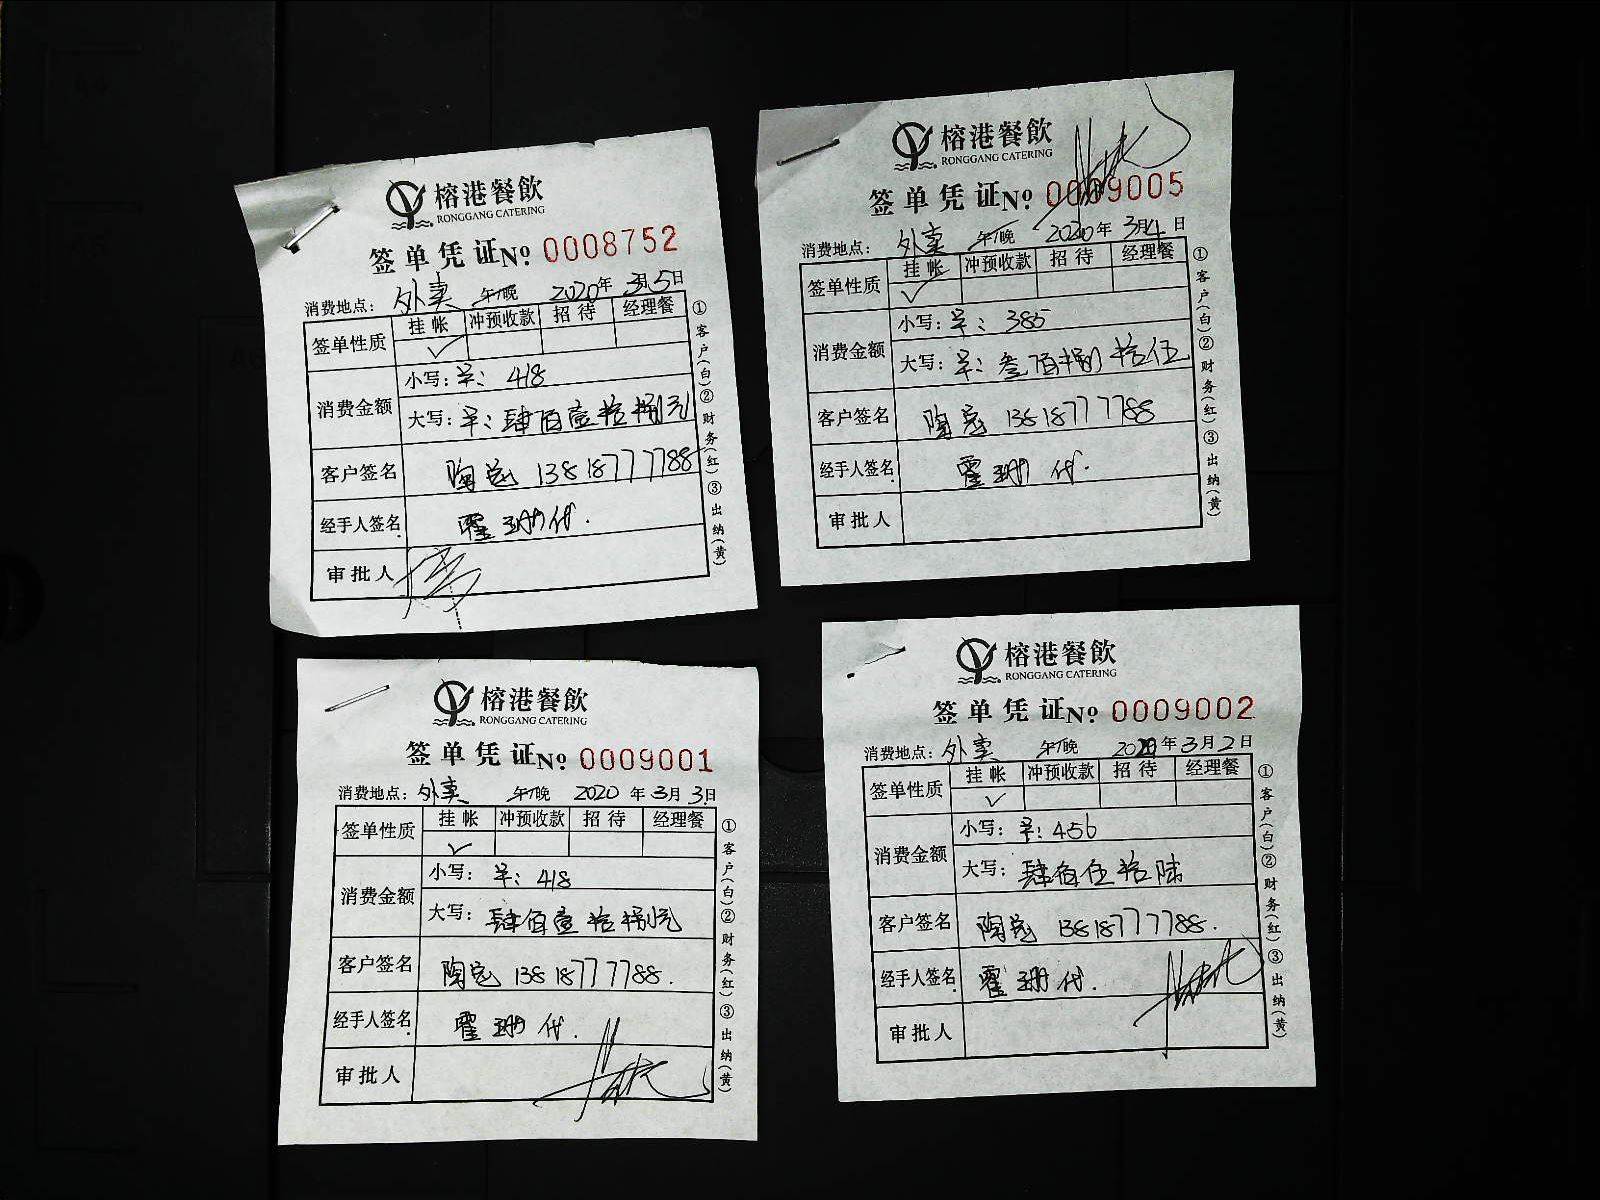 榕港餐飲
RONGGANG CATERING
签单凭证№ 0008752
消费地点: 外卖 午/晚 2020年3月5日
签单性质 挂帐 冲预收款 招待 经理餐
✓
消费金额 小写: 羊: 418
大写: 羊: 肆佰壹拾捌元
客户签名 陶 13818777788
经手人签名 霍珊代.
审批人
①客户(白)②财务(红)③出纳(黄)
榕港餐飲
RONGGANG CATERING
签单凭证№ 0009005
消费地点: 外卖 午/晚 2020年3月4日
签单性质 挂帐 冲预收款 招待 经理餐
✓
消费金额 小写: 羊: 385
大写: 羊: 叁佰捌拾伍
客户签名 陶 13818777788
经手人签名 霍珊代.
审批人
①客户(白)②财务(红)③出纳(黄)
榕港餐飲
RONGGANG CATERING
签单凭证№ 0009001
消费地点: 外卖 午/晚 2020年3月3日
签单性质 挂帐 冲预收款 招待 经理餐
✓
消费金额 小写: 羊: 418
大写: 肆佰壹拾捌元
客户签名 陶 13818777788.
经手人签名 霍珊代.
审批人
①客户(白)②财务(红)③出纳(黄)
榕港餐飲
RONGGANG CATERING
签单凭证№ 0009002
消费地点: 外卖 午/晚 2020年3月2日
签单性质 挂帐 冲预收款 招待 经理餐
✓
消费金额 小写: 羊: 456
大写: 肆佰伍拾陆
客户签名 陶 13818777788.
经手人签名 霍珊代.
审批人
①客户(白)②财务(红)③出纳(黄)